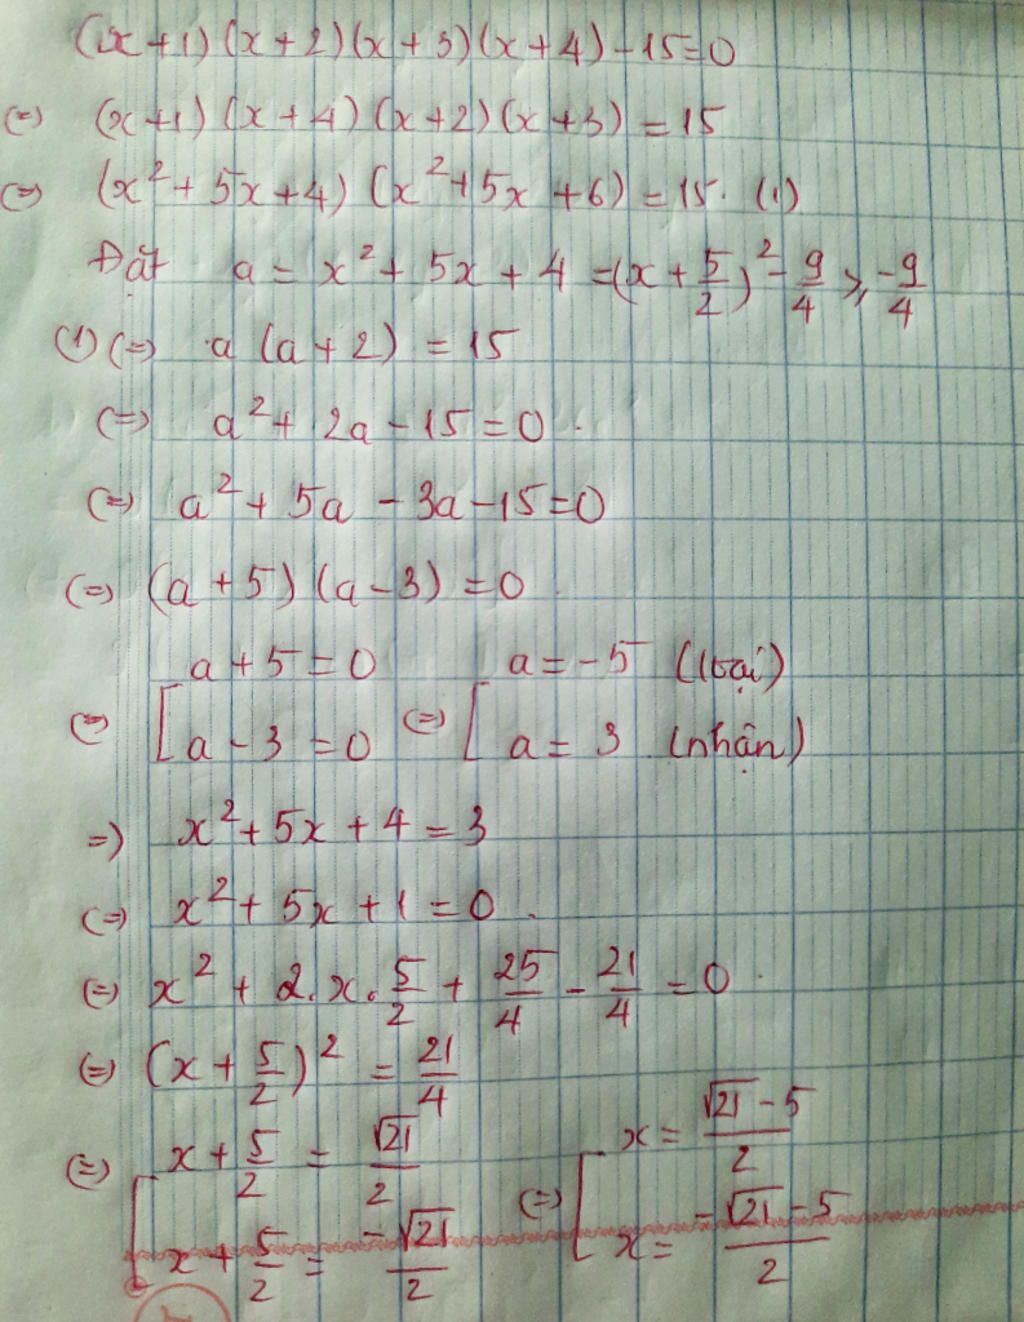 (x+1)(x+2)(x+3)(x+4)-15=0
(=) (x+1)(x+4)(x+2)(x+3)=15
(=) (x²+5x+4)(x²+5x+6)=15. (1)
Đặt a = x²+5x+4 =(x+5/2)²-9/4 ≥ -9/4
(1) (=) a(a+2) = 15
(=) a²+2a-15=0.
(=) a²+5a-3a-15=0
(=) (a+5)(a-3)=0
a+5=0 a=-5 (loại)
(=) [ a-3=0 (=) [ a=3 (nhận)
=) x²+5x+4=3
(=) x²+5x+1=0.
(=) x²+2.x.5/2+25/4-21/4=0.
(=) (x+5/2)²=21/4
(=) [ x+5/2=√21/2 (=) [ x=(√21-5)/2
x+5/2=-√21/2 x=(-√21-5)/2